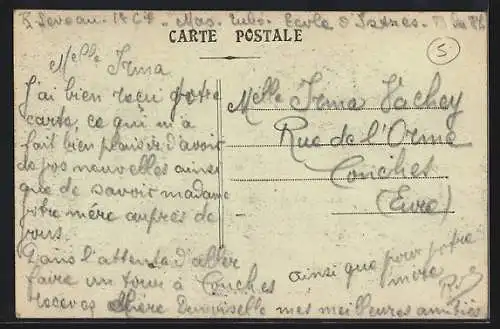 R. Leveau. 1e Cie - Mas. Subs. Ecole d'Istres.
CARTE POSTALE
5
Melle Irma
J'ai bien reçu votre
carte, ce qui m'a
fait bien plaisir d'avoir
de vos nouvelles ainsi
que de savoir madame
votre mère auprès de
vous.
Dans l'attente d'aller
faire un tour à Conches
recevez chère Demoiselle mes meilleures amitiés
ainsi que pour votre
mère
Melle Irma Vachey
Rue de l'Orme
Conches
(Eure)